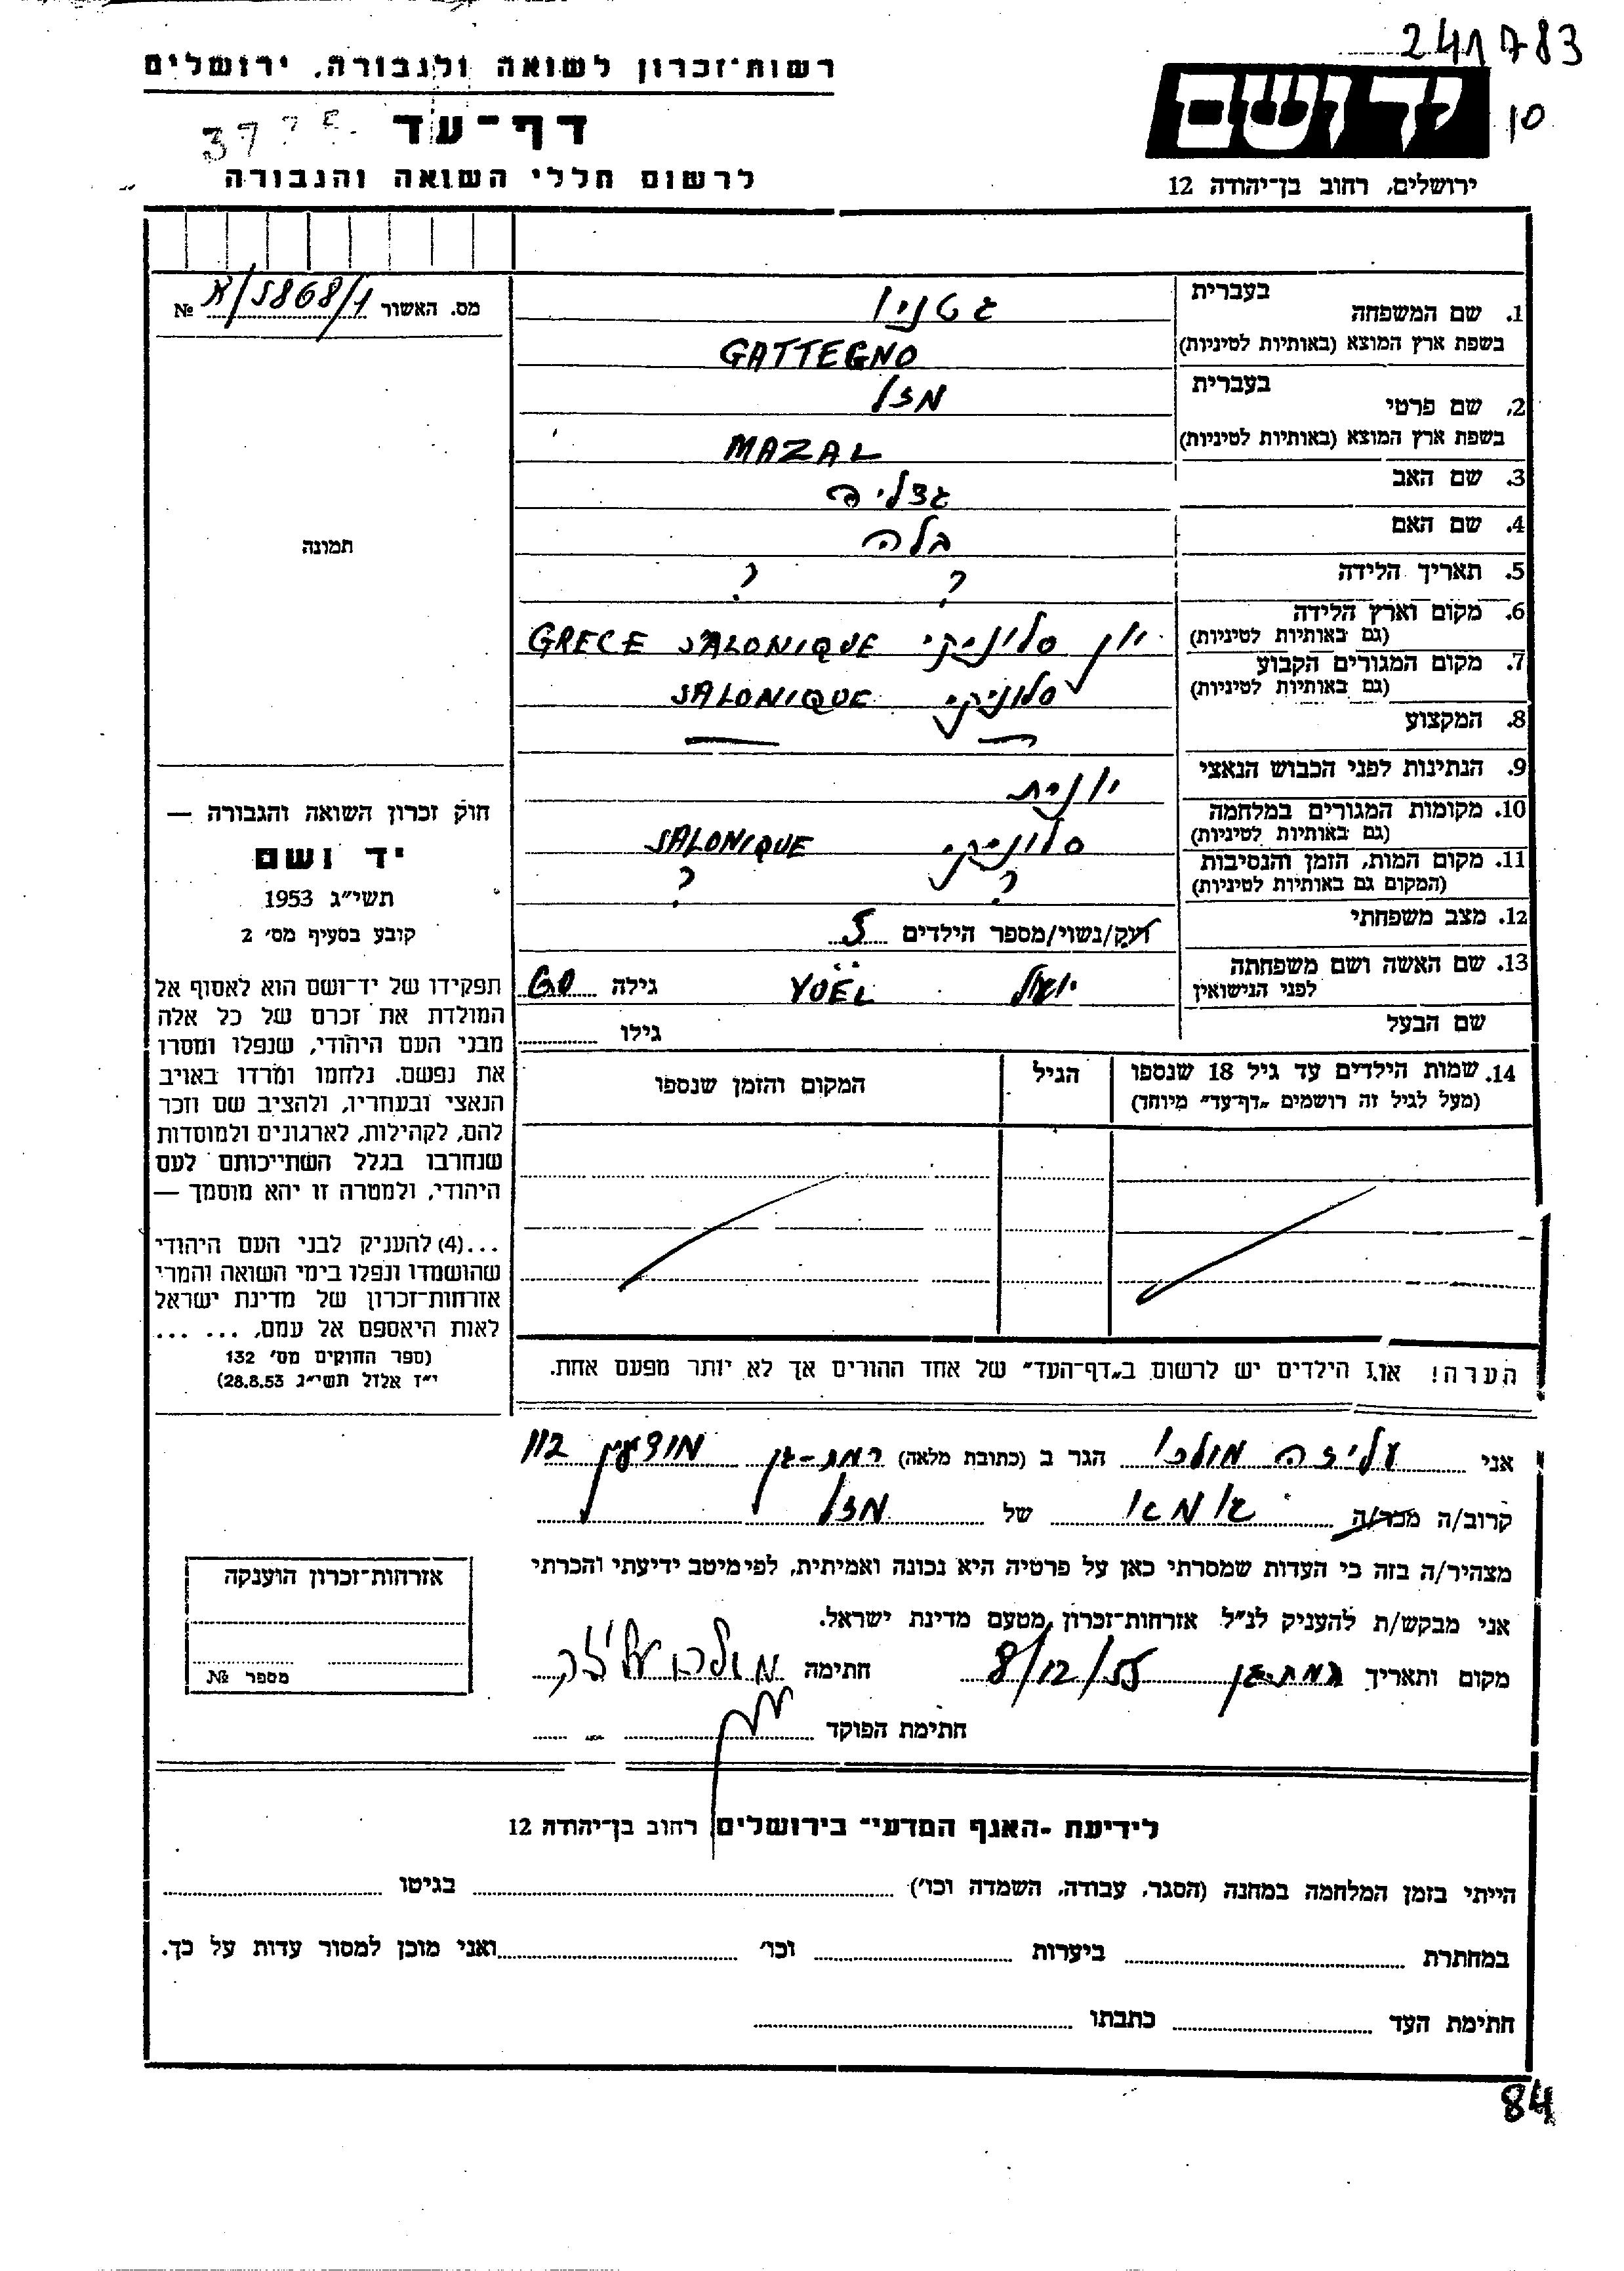 241783
רשות־זכרון לשואה ולגבורה, ירושלים
יד ושם
10
דף־עד
לרשום חללי השואה והגבורה
ירושלים, רחוב בן־יהודה 12
מס. האשור א/5868/1 №
1. שם המשפחה בעברית גטניו
בשפת ארץ המוצא (באותיות לטיניות) GATTEGNO
2. שם פרטי בעברית מזל
בשפת ארץ המוצא (באותיות לטיניות) MAZAL
3. שם האב
4. שם האם בלה
תמונה
5. תאריך הלידה ? ?
6. מקום וארץ הלידה (גם באותיות לטיניות) יון סלוניקי GRECE SALONIQUE
7. מקום המגורים הקבוע (גם באותיות לטיניות) סלוניקי SALONIQUE
8. המקצוע — —
9. הנתינות לפני הכבוש הנאצי יונית
10. מקומות המגורים במלחמה (גם באותיות לטיניות) סלוניקי SALONIQUE
11. מקום המות, הזמן והנסיבות (המקום גם באותיות לטיניות) ? ?
12. מצב משפחתי רוק/נשוי/מספר הילדים 5
13. שם האשה ושם משפחתה לפני הנישואין יואל YOËL גילה 60
שם הבעל גילו
14. שמות הילדים עד גיל 18 שנספו הגיל המקום והזמן שנספו
(מעל לגיל זה רושמים „דף־עד” מיוחד)
חוק זכרון השואה והגבורה —
יד ושם
תשי״ג 1953
קובע בסעיף מס׳ 2
תפקידו של יד־ושם הוא לאסוף אל
המולדת את זכרם של כל אלה
מבני העם היהודי, שנפלו ומסרו
את נפשם. נלחמו ומרדו באויב
הנאצי ובעוזריו, ולהציב שם וזכר
להם, לקהילות, לארגונים ולמוסדות
שנחרבו בגלל השתייכותם לעם
היהודי, ולמטרה זו יהא מוסמך —
...(4) להעניק לבני העם היהודי
שהושמדו ונפלו בימי השואה והמרי
אזרחות־זכרון של מדינת ישראל
לאות היאספם אל עמם, ... ...
(ספר החוקים מס׳ 132
י״ז אלול תשי״ג 28.8.53)
הערה! את הילדים יש לרשום ב„דף־העד” של אחד ההורים אך לא יותר מפעם אחת.
אני עליזה מולכו הגר ב (כתובת מלאה) רמת-גן מודעין 112
קרוב/ה מכר/ה של מזל
מצהיר/ה בזה כי העדות שמסרתי כאן על פרטיה היא נכונה ואמיתית, לפי מיטב ידיעתי והכרתי
אני מבקש/ת להעניק לנ״ל אזרחות־זכרון מטעם מדינת ישראל.
מקום ותאריך רמת-גן 8/12/55 חתימה מולכו עליזה
חתימת הפוקד
אזרחות־זכרון הוענקה
מספר №
לידיעת -האגף המדעי־ בירושלים רחוב בן־יהודה 12
הייתי בזמן המלחמה במחנה (הסגר, עבודה, השמדה וכו׳) בגיטו
במחתרת ביערות וכו׳ ואני מוכן למסור עדות על כך.
חתימת העד כתבתו
84